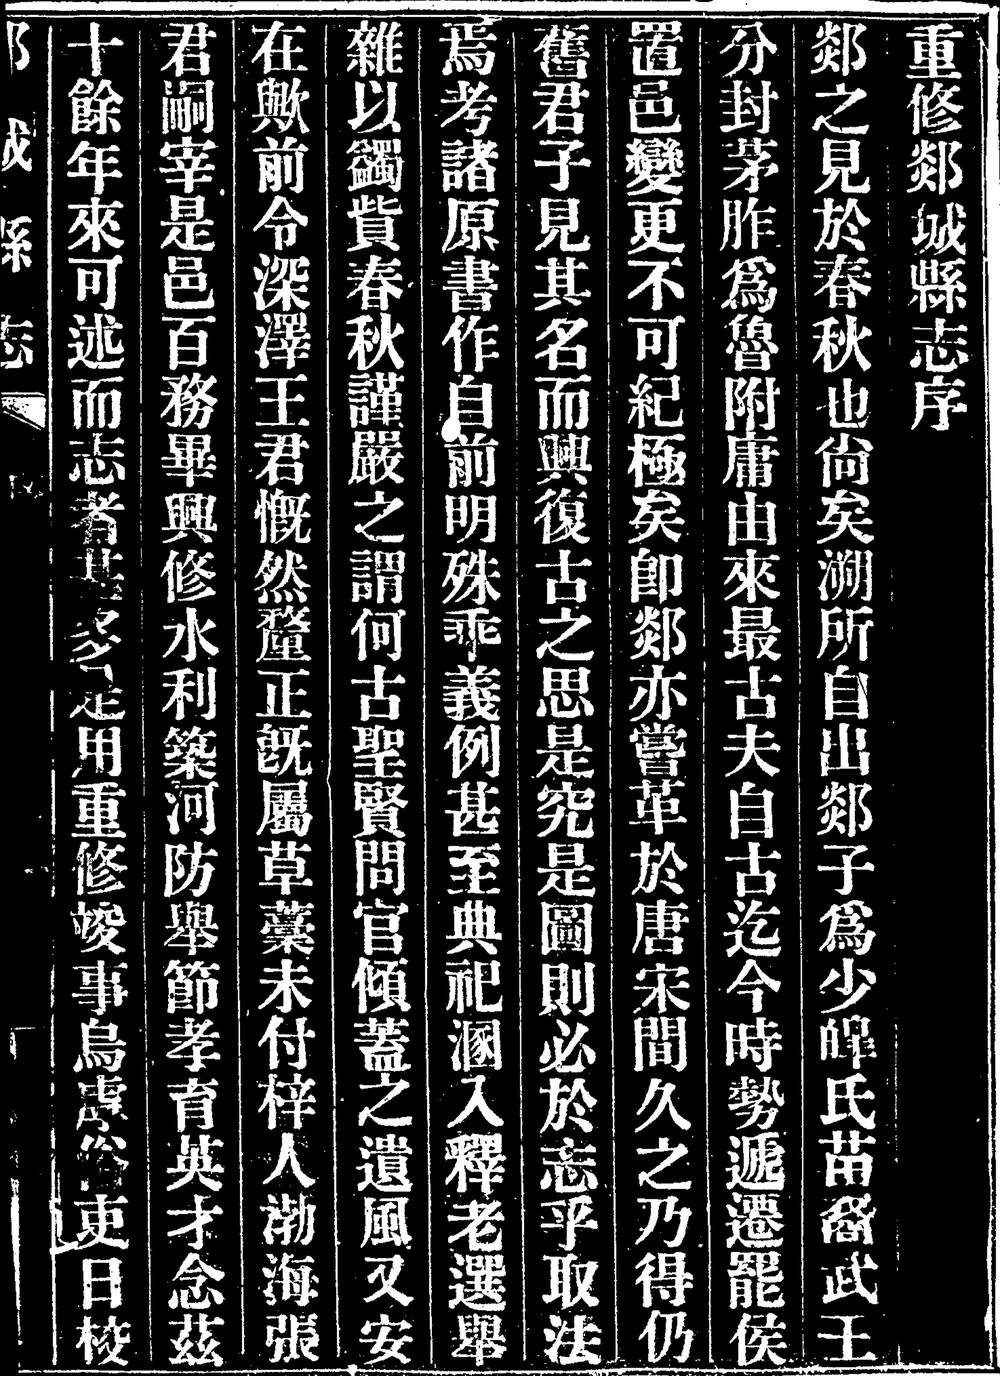 重修郯城縣志序
郯之見於春秋也尙矣溯所自出郯子爲少皥氏苗裔武王
分封茅胙爲魯附庸由來最古夫自古迄今時勢遞遷罷侯
置邑變更不可紀極矣卽郯亦嘗革於唐宋間久之乃得仍
舊君子見其名而興復古之思是究是圖則必於志乎取法
焉考諸原書作自前明殊乖義例甚至典祀溷入釋老選舉
雜以蠲貲春秋謹嚴之謂何古聖賢問官傾蓋之遺風又安
在歟前令深澤王君慨然釐正旣屬草藳未付梓人渤海張
君嗣宰是邑百務畢興修水利築河防舉節孝育英才念茲
十餘年來可述而志者甚多是用重修竣事烏虖俗吏日校
郯城縣志